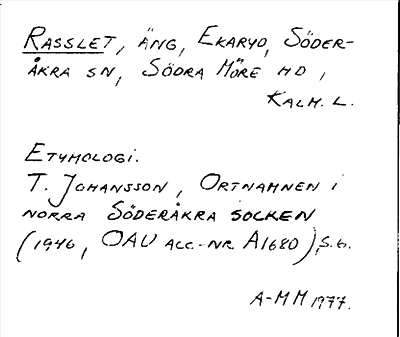 RASSLET, ÄNG, EKARYD, SÖDER-
ÅKRA SN, SÖDRA MÖRE HD,
KALM. L.
ETYMOLOGI.
T. JOHANSSON, ORTNAMNEN I
NORRA SÖDERÅKRA SOCKEN
(1946, OAU ACC.-NR A1680), S. 6.
A-MM 1977.